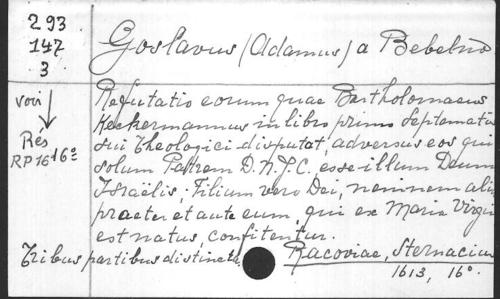 293
147
3
Goslavus (Adamus) a Bebelno
voir
Rés
RP 16 16°
Refutatio eorum quae Bartholomaeus
Keckermannus in libro primo Septematis
sui Theologici disputat, adversus eos qui
solum Patrem D.N.J.C. esse illum Deum
Israëlis; Filium vero Dei, neminem ali
praeter et ante eum, qui ex Maria Virgi
est natus, confitentur.
Tribus partibus distincta
Racoviae, Sternacius
1613, 16°.